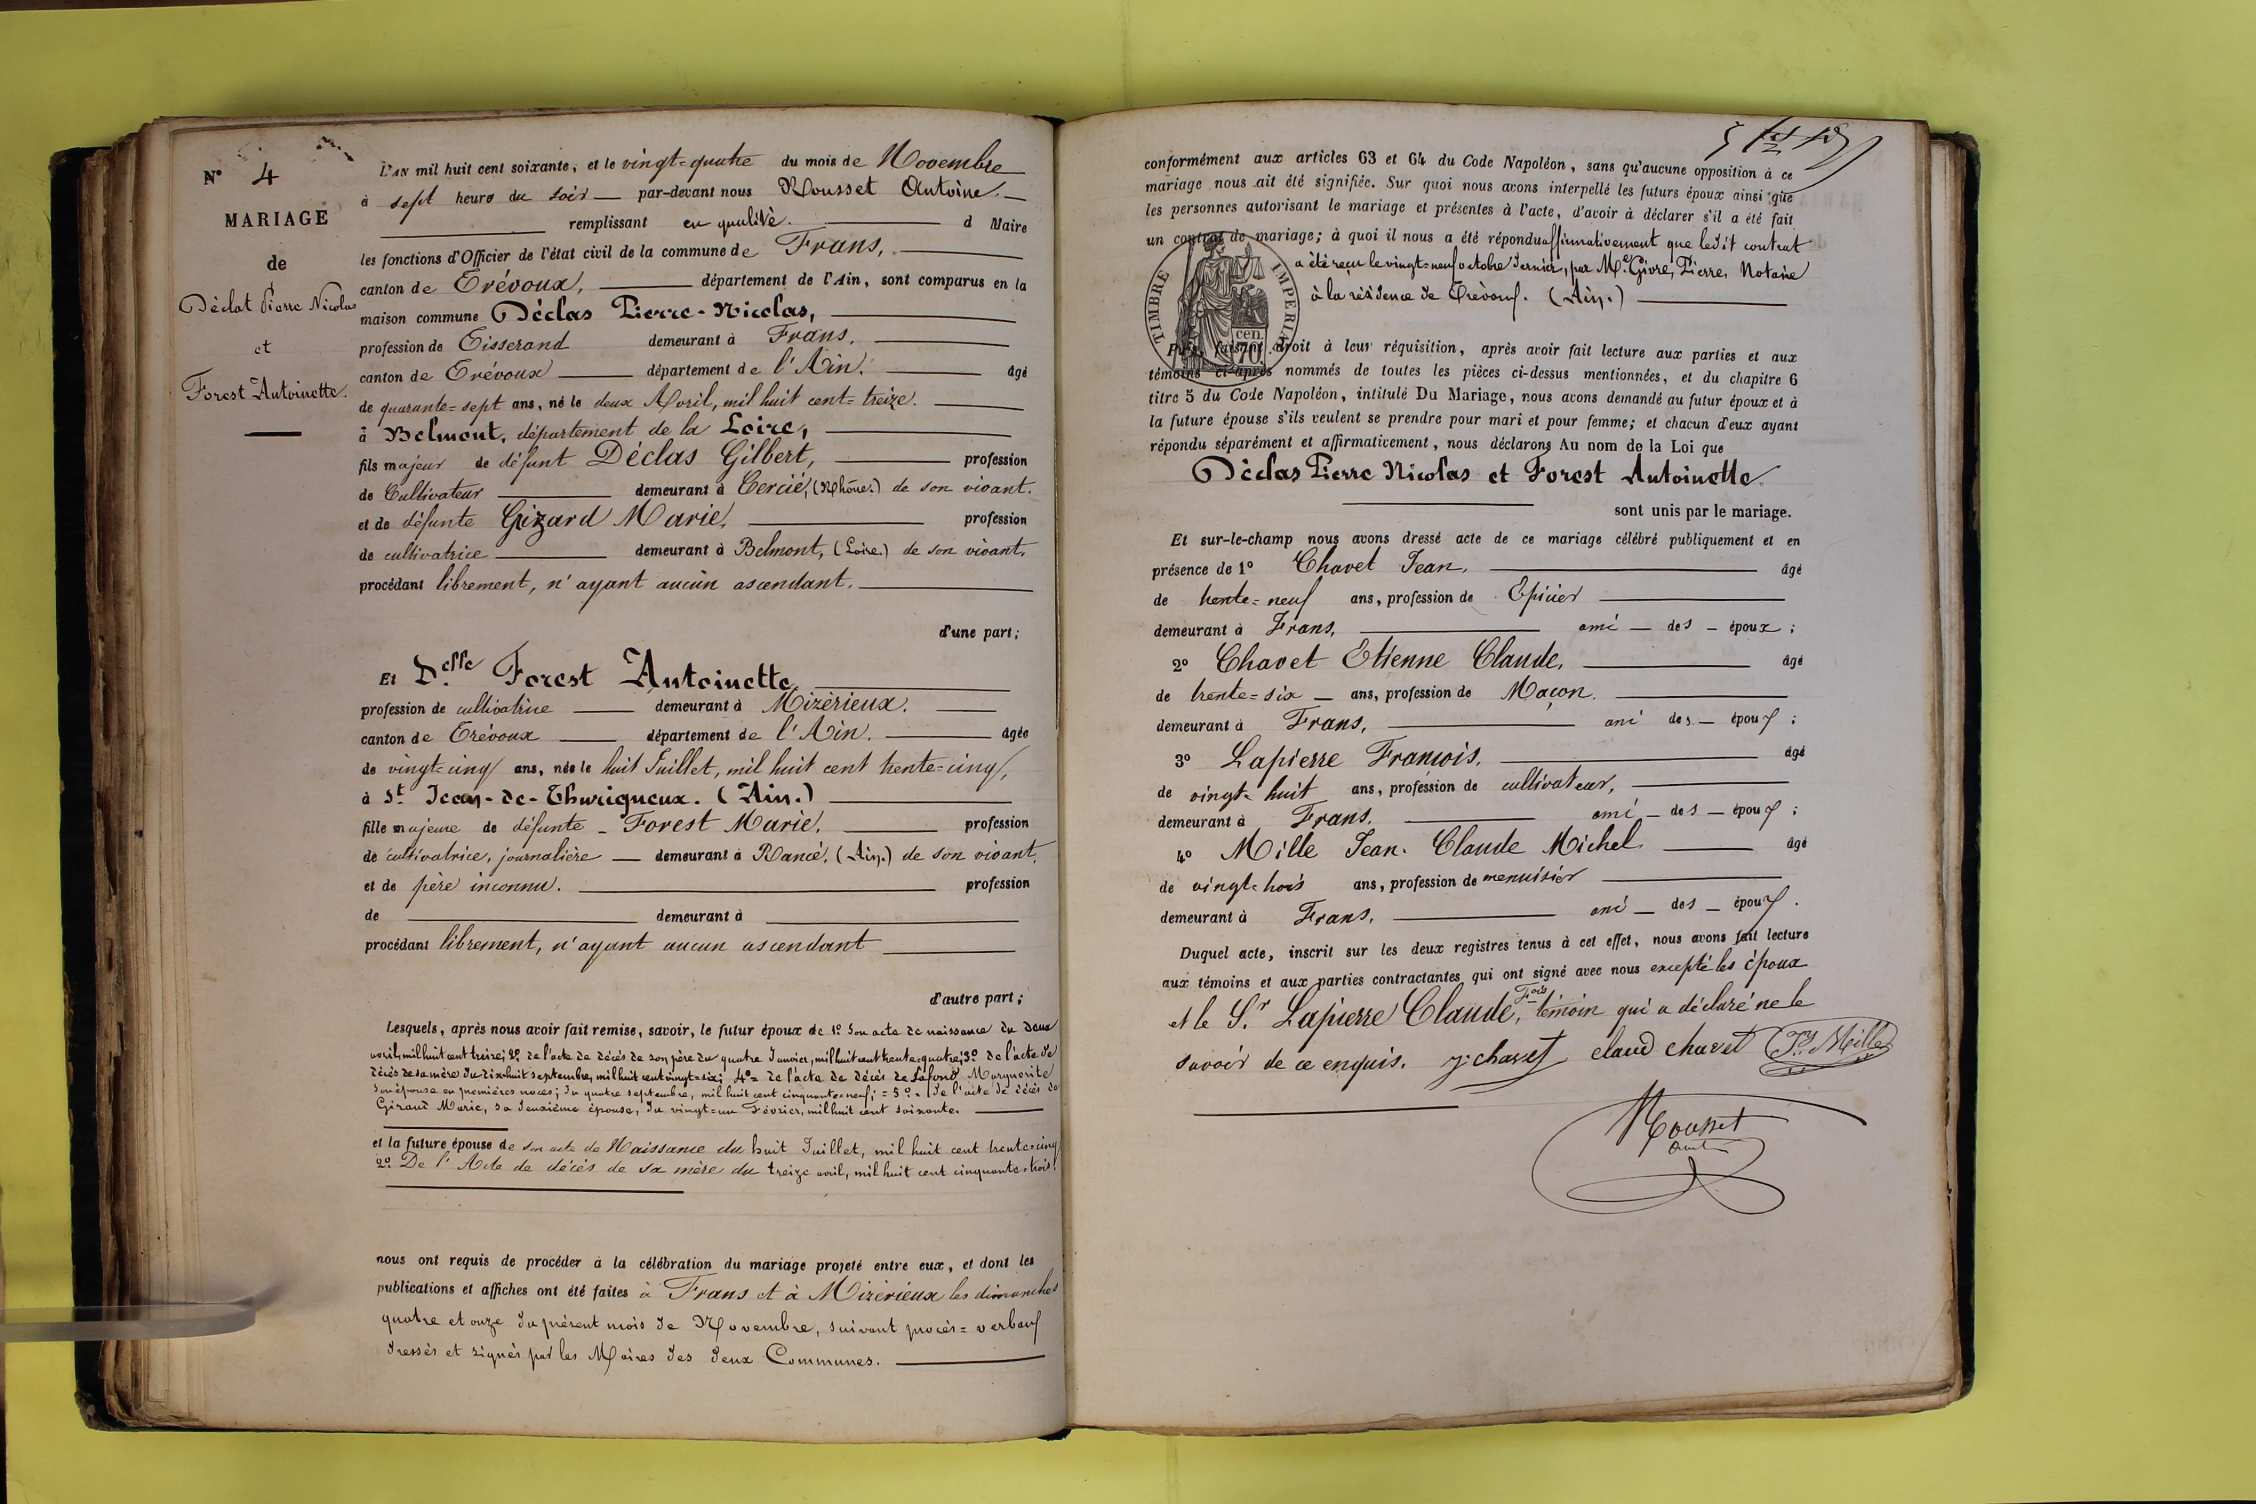 N° 4
MARIAGE
de
Déclat Pierre Nicolas
et
Forest Antoinette.
L'AN mil huit cent soixante, et le vingt=quatre du mois de Novembre
à sept heure du soir par-devant nous Rousset Antoine.
remplissant en qualité d Maire
les fonctions d'Officier de l'état civil de la commune de Frans,
canton de Trévoux, département de l'Ain, sont comparus en la
maison commune Déclas Pierre-Nicolas,
profession de Tisserand demeurant à Frans,
canton de Trévoux département de l'Ain. âgé
de quarante=sept ans, né le deux Avril, mil huit cent=treize.
à Belmont, département de la Loire,
fils majeur de défunt Déclas Gilbert, profession
de Cultivateur demeurant à Cercié, (Rhône.) de son vivant.
et de défunte Gizard Marie, profession
de cultivatrice demeurant à Belmont, (Loire.) de son vivant,
procédant librement, n'ayant aucun ascendant.
d'une part;
Et D.elle Forest Antoinette
profession de cultivatrice demeurant à Mizérieux.
canton de Trévoux département de l'Ain. âgée
de vingt=cinq ans, née le huit Juillet, mil huit cent trente=cinq,
à St Jean-de-Thurigneux. (Ain.)
fille majeure de défunte Forest Marie, profession
de cultivatrice, journalière demeurant à Rancé, (Ain.) de son vivant,
et de père inconnu. profession
de demeurant à
procédant librement, n'ayant aucun ascendant
d'autre part;
Lesquels, après nous avoir fait remise, savoir, le futur époux de 1° Son acte de naissance du deux
avril, mil huit cent treize; 2° de l'acte de décès de son père du quatre Janvier, mil huit cent trente=quatre; 3° de l'acte de
décès de sa mère du dix huit septembre, mil huit cent vingt=six; 4°= de l'acte de décès de Lafond Marguerite
son épouse en premières noces; du quatre septembre, mil huit cent cinquante=neuf; = 5°= de l'acte de décès de
Giraud Marie, sa deuxième épouse, du vingt=un Février, mil huit cent soixante.
et la future épouse de son acte de Naissance du huit Juillet, mil huit cent trente=cinq
2° De l'Acte de décès de sa mère du treize avril, mil huit cent cinquante=trois.
nous ont requis de procéder à la célébration du mariage projeté entre eux, et dont les
publications et affiches ont été faites à Frans et à Mizérieux les dimanches
quatre et onze du présent mois de Novembre, suivant procès=verbaux
dressés et signés par les Maires des deux Communes.
conformément aux articles 63 et 64 du Code Napoléon, sans qu'aucune opposition à ce
mariage nous ait été signifiée. Sur quoi nous avons interpellé les futurs époux ainsi que
les personnes autorisant le mariage et présentes à l'acte, d'avoir à déclarer s'il a été fait
un contrat de mariage; à quoi il nous a été répondu affirmativement que ledit contrat
a été reçu le vingt=neuf octobre dernier, par Me. Givre, Pierre, Notaire
à la résidence de Trévoux. (Ain.)
TIMBRE IMPERIAL
cen.
70.
Puis, faisant droit à leur réquisition, après avoir fait lecture aux parties et aux
témoins ci-après nommés de toutes les pièces ci-dessus mentionnées, et du chapitre 6
titre 5 du Code Napoléon, intitulé Du Mariage, nous avons demandé au futur époux et à
la future épouse s'ils veulent se prendre pour mari et pour femme; et chacun d'eux ayant
répondu séparément et affirmativement, nous déclarons Au nom de la Loi que
Déclas Pierre Nicolas et Forest Antoinette
sont unis par le mariage.
Et sur-le-champ nous avons dressé acte de ce mariage célébré publiquement et en
présence de 1° Chavet Jean, âgé
de trente=neuf ans, profession de Epicier
demeurant à Frans, ami des époux;
2° Chavet Etienne Claude, âgé
de trente=six ans, profession de Maçon.
demeurant à Frans, ami des époux;
3° Lapierre François, âgé
de vingt=huit ans, profession de cultivateur,
demeurant à Frans, ami des époux;
4° Mille Jean-Claude Michel âgé
de vingt=trois ans, profession de menuisier
demeurant à Frans, ami des époux.
Duquel acte, inscrit sur les deux registres tenus à cet effet, nous avons fait lecture
aux témoins et aux parties contractantes qui ont signé avec nous excepté les époux
et le S.r Lapierre Claude, Fois témoin qui a déclaré ne le
savoir de ce enquis. J. chavet claud chavet Mille
Rousset
Ant